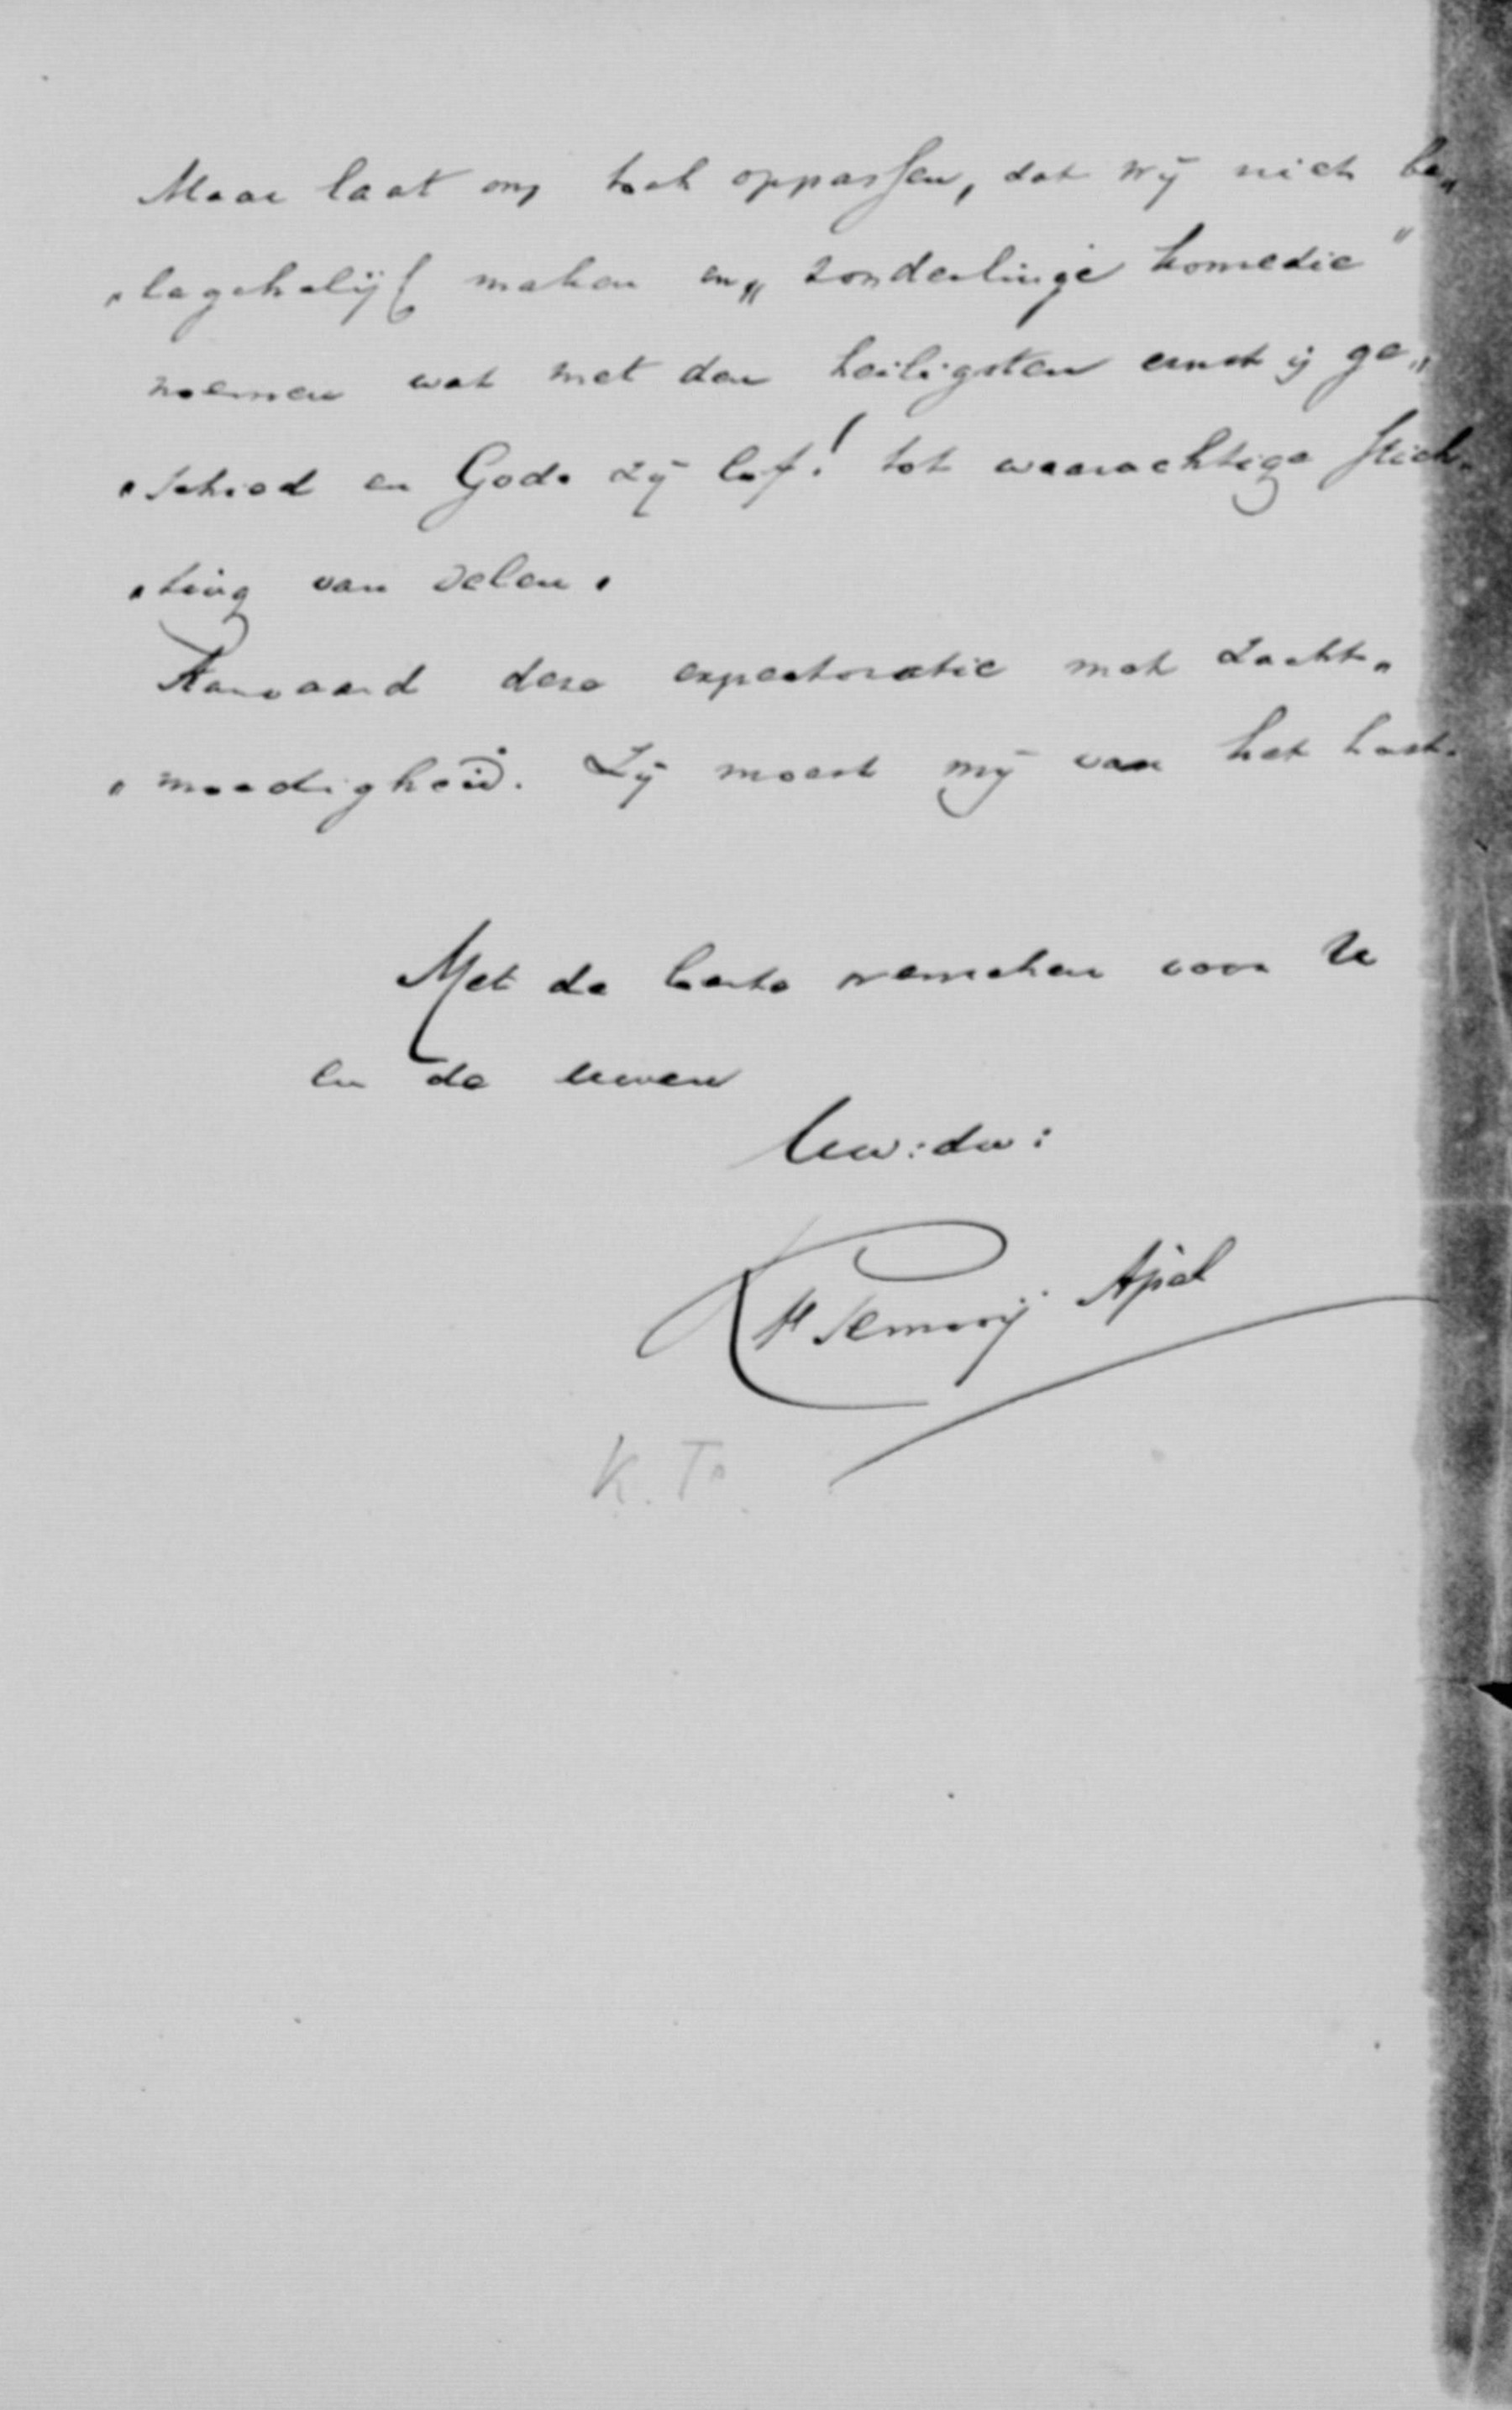 Maar laat ons toch oppassen, dat wij niet be„
„lagchelijk maken en „zonderlinge komedie"
noemen wat met den heiligsten ernst is ge„
„schied en Gode zij lof! tot waarachtige stich„
„ting van velen.
Aanvaard deze expectoratie met zacht„
„moedigheid. Zij moest mij van het hart.
Met de beste wenschen voor U
en de uwen
Uw: dw:
H Pemerij Apel
K. T.